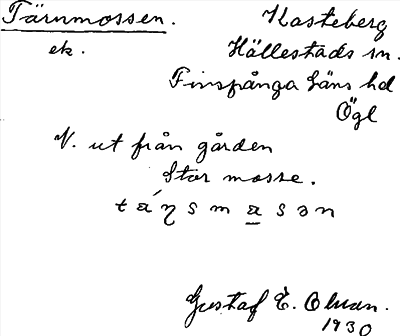 Tärnmossen. Kasteberg
ek. Hällestads sn.
Finspånga läns hd
Ögl
V. ut från gården
Stor mosse.
Gustaf E.
1930